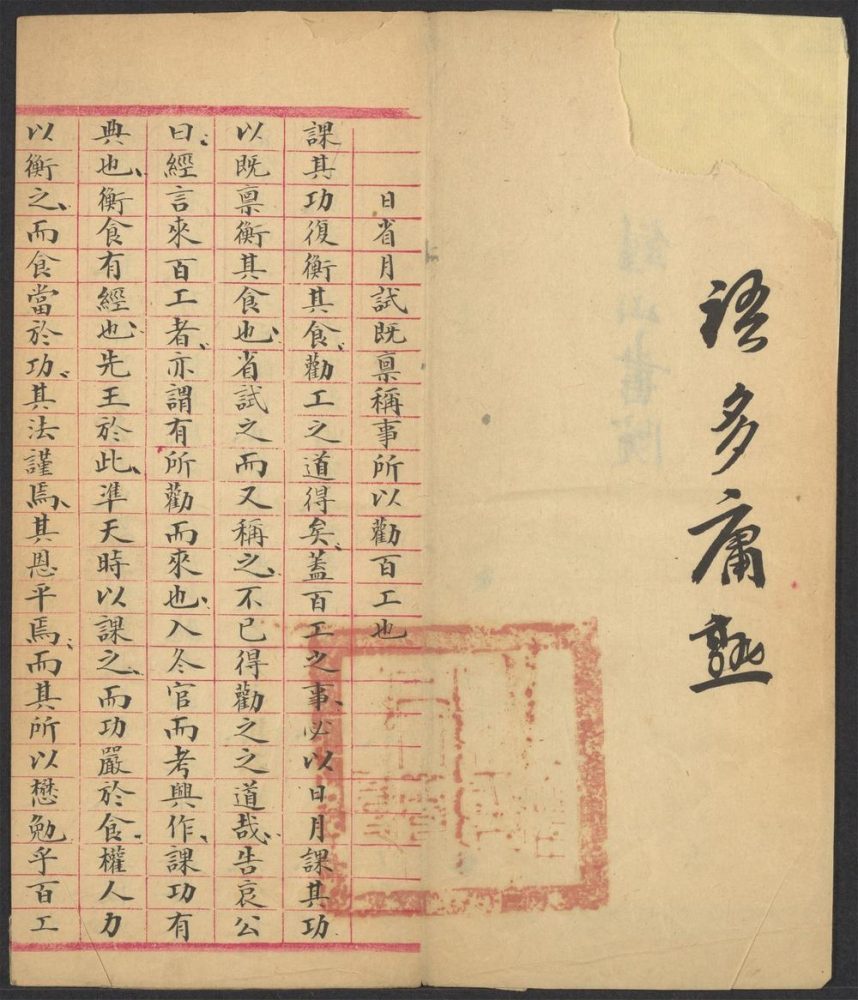 語多庸熟
日省月試既稟稱事所以勸百工也
課其功復衡其食勸工之道得矣蓋百工之事必以日月課其功
以既稟衡其食也省試之而又稱之不已得勸之之道哉告哀公
曰經言來百工者亦謂有所勸而來也入冬官而考興作課功有
典也衡食有經也先王於此準天時以課之而功嚴於食權人力
以衡之而食當於功其法謹焉其恩平焉而其所以懋勉乎百工